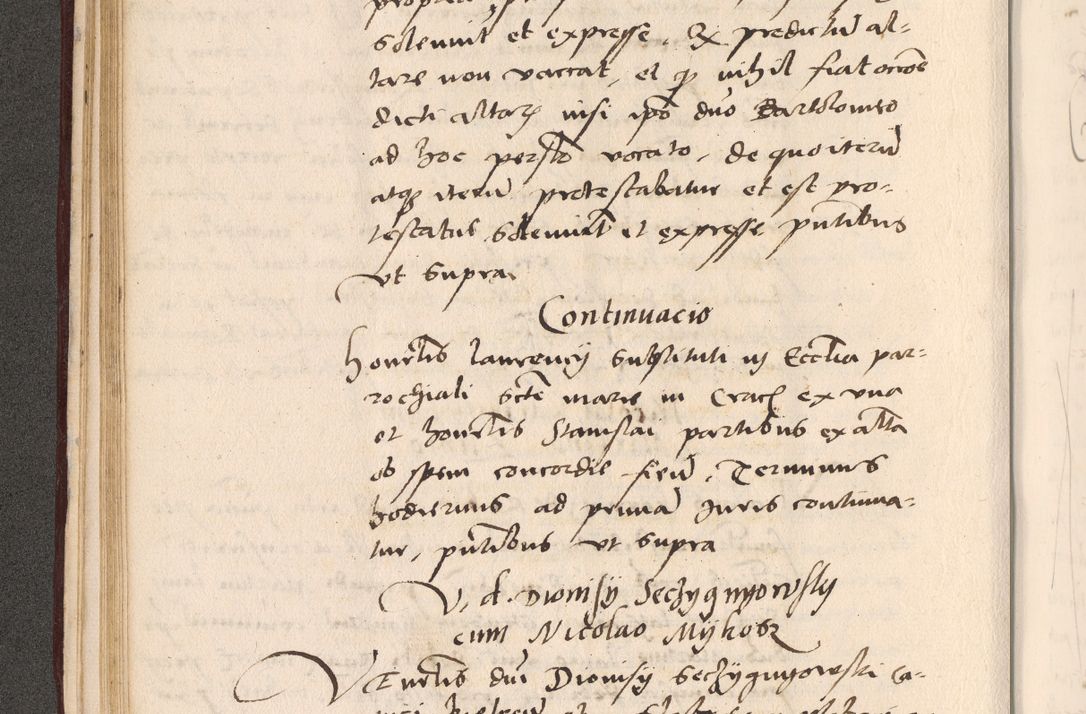 solemnit et expresse. Ex predictu al-
tare non vaccat, et q nihil fiat occoe
dicti altaris nisi ipo dno Bartolomeo
ad hoc persto vocato, de quo iteru
atq iteru protestabatur et est pro-
testatus solemnit et expresse pntibus
ut supra
Continuacio
Honrlis Laurencij substituti in Ecclia par-
rochiali scte marie in Crac ex una
et honrlis Stanislai partibus ex alta
ob spem concordie fieu, Terminus
hodiernus ad prima Juris continua-
tur, pntibus ut supra
V. d. Dionisij Seczygnyowsky
cum Nicolao Mykosz
Venrlis dni Dionisij Seczygnyowski ca-